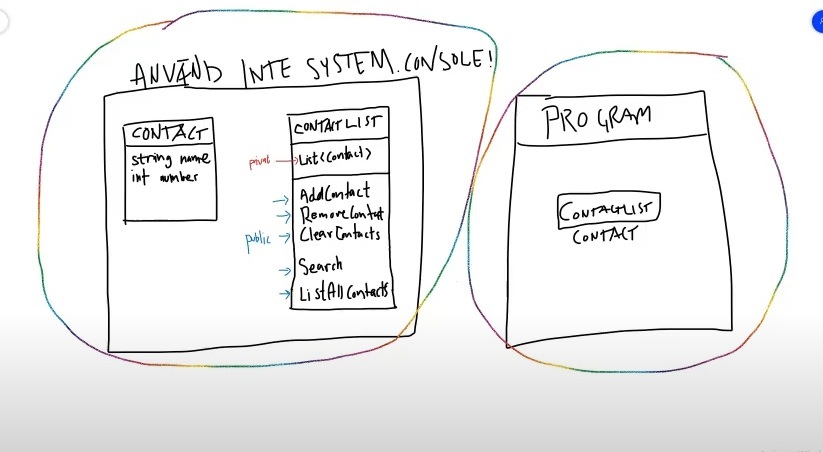 ANVÄND INTE SYSTEM.CONSOLE!
CONTACT
string name
int number
CONTACT LIST
privat
List<Contact>
AddContact
RemoveContact
public
ClearContacts
Search
ListAllContacts
PROGRAM
CONTACTLIST
CONTACT